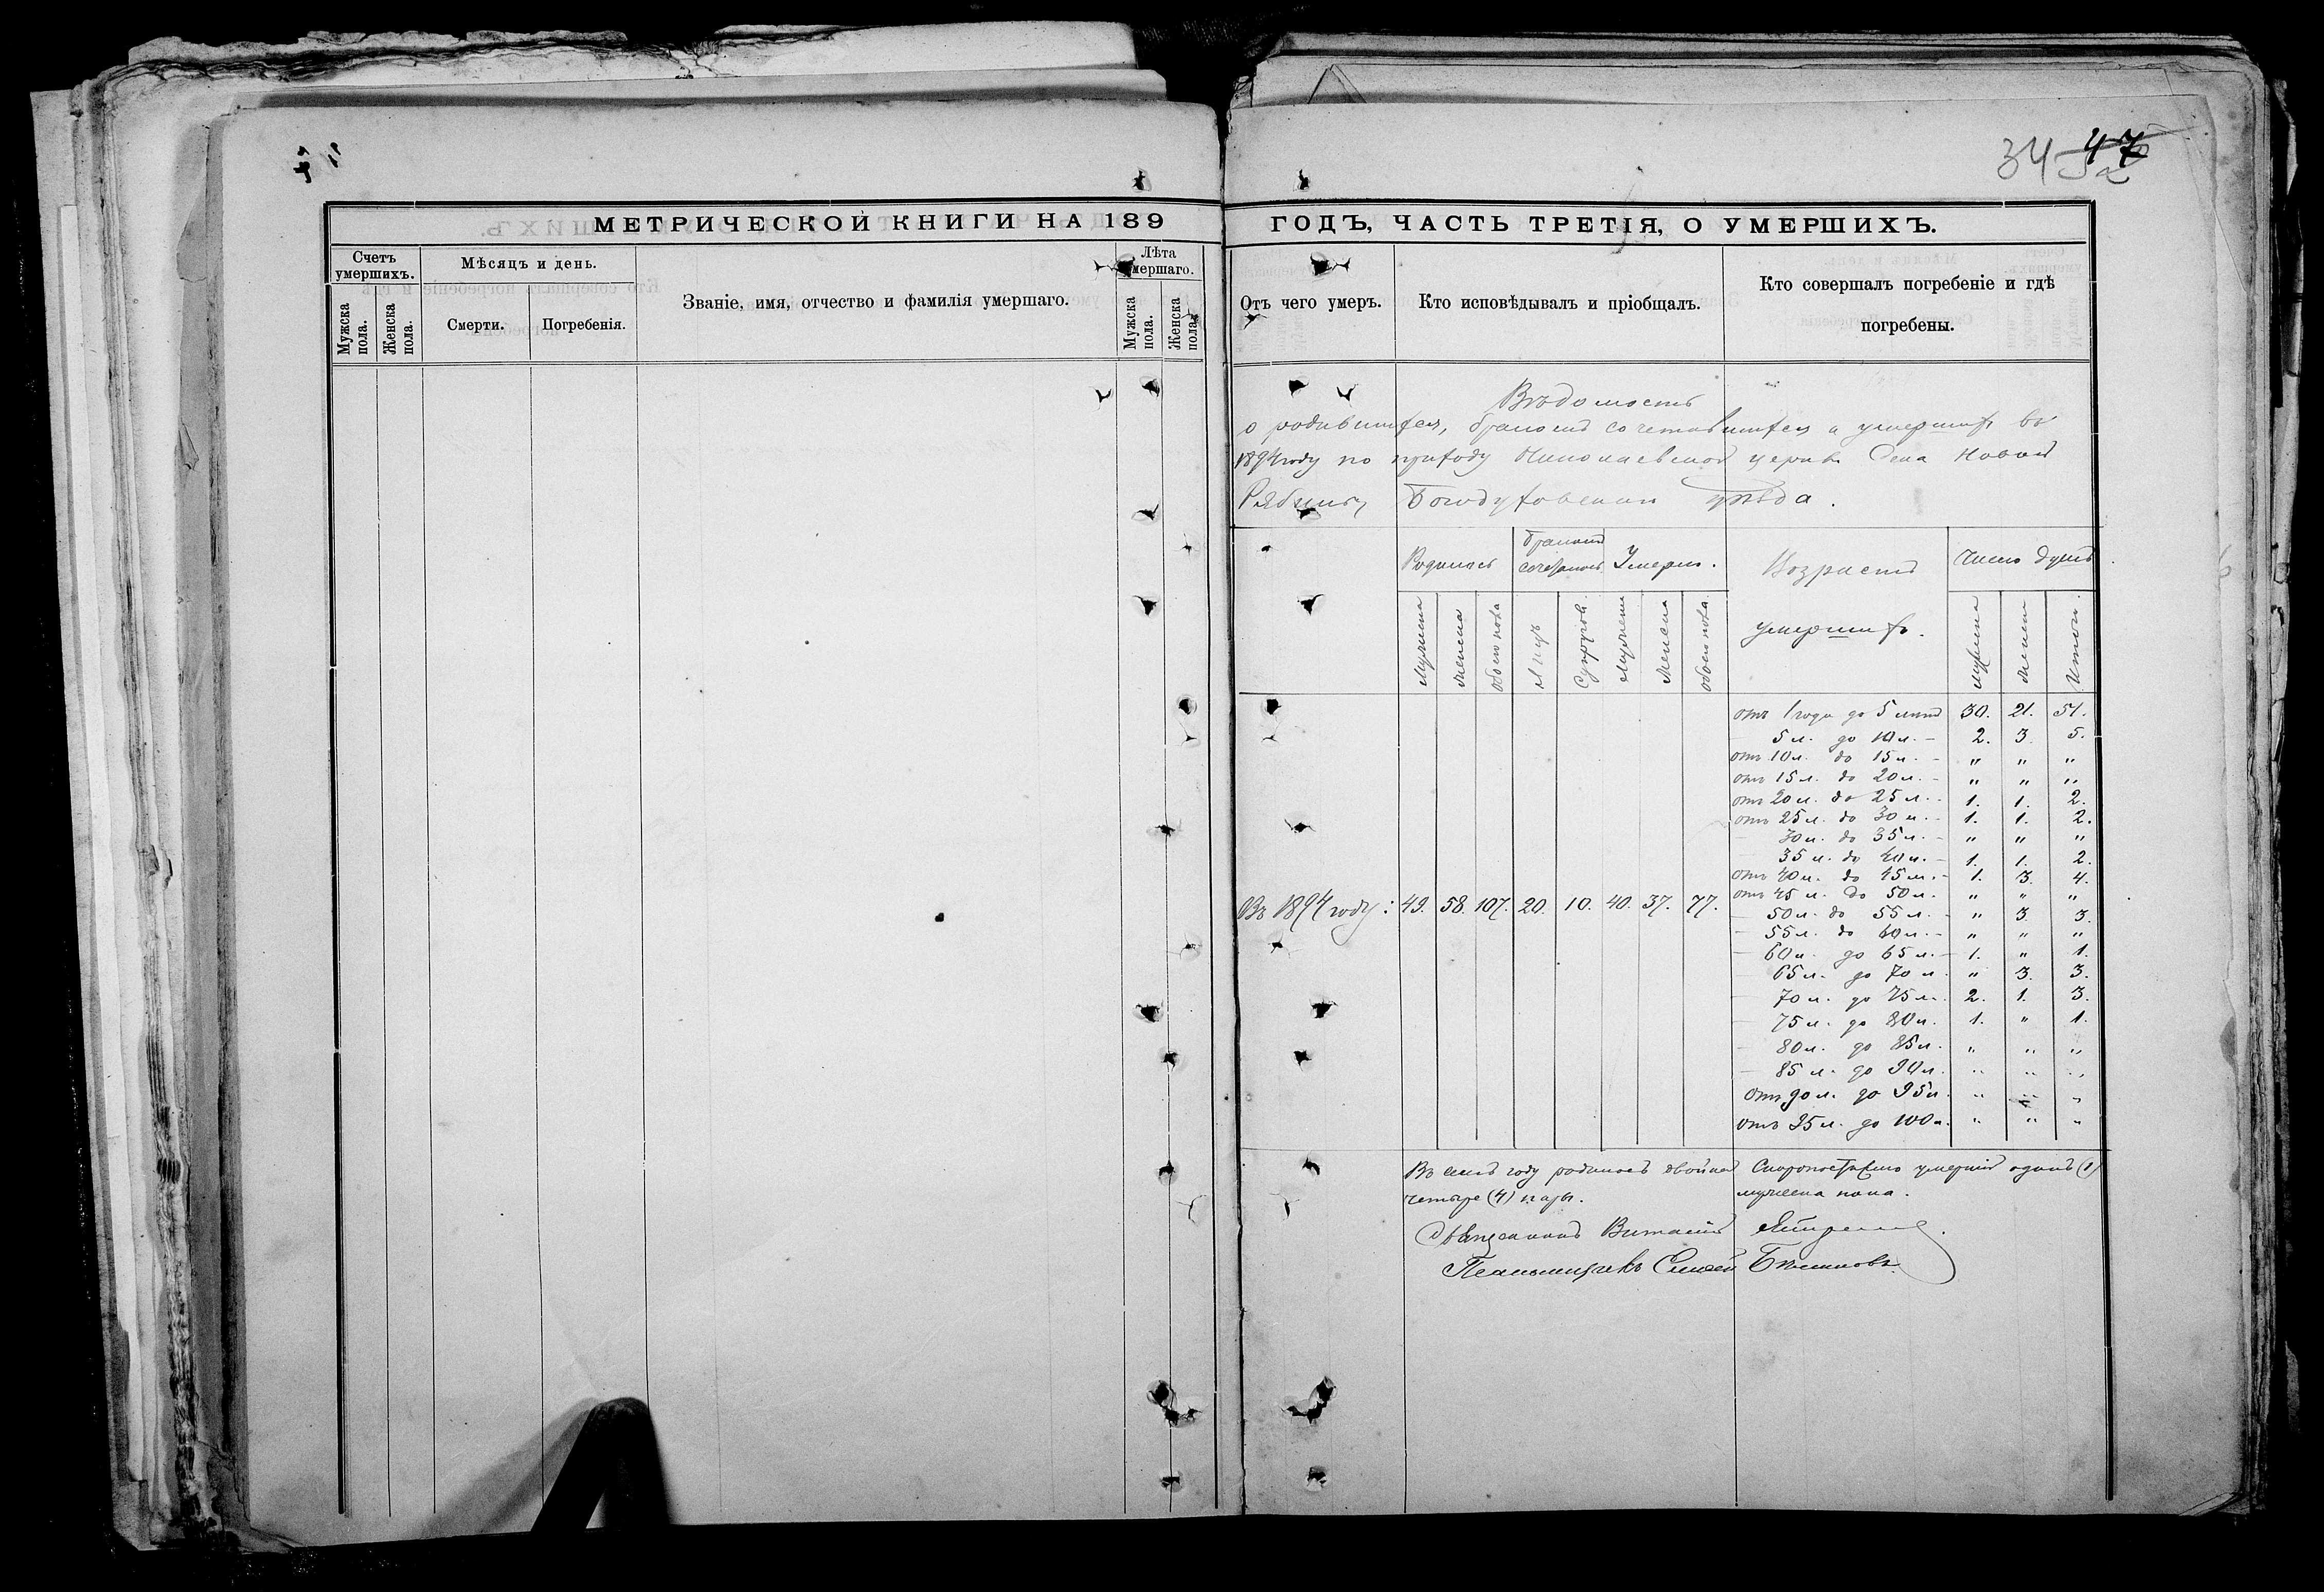 34 47
МЕТРИЧЕСКОЙ КНИГИ НА 189
ГОДЪ, ЧАСТЬ ТРЕТІЯ, О УМЕРШИХЪ.
Счетъ умершихъ.
Мужска пола.
Женска пола.
Мѣсяцъ и день.
Смерти.
Погребенія.
Званіе, имя, отчество и фамилія умершаго.
Лѣта умершаго.
Мужска пола.
Женска пола.
Отъ чего умеръ.
Кто исповѣдывалъ и пріобщалъ.
Кто совершалъ погребеніе и гдѣ
погребены.
Вѣдомость
о родившихся, бракомъ сочетавшихся и умершихъ въ
1894 году по приходу Николаевской церкви Села Новой
Рябины, Богодуховскаго уѣзда.
Родилось
бракомъ сочеталось
Умерло.
Возрастъ
умершихъ.
Число душъ
Мужеска
женска
обоего пола
Лицъ
Супруговъ.
Мужеска
Женска
обоего пола
мужеска
женска
Итого.
отъ 1 года до 5 лѣтъ 30. 21. 51.
— 5 л. до 10 л. — 2. 3. 5.
отъ 10 л. до 15 л. — " " "
отъ 15 л. до 20 л. — " " "
отъ 20 л. до 25 л. — 1. 1. 2.
отъ 25 л. до 30 л. — 1. 1. 2.
— 30 л. до 35 л. — " " "
— 35 л. до 40 л. — 1. 1. 2.
отъ 40 л. до 45 л. — 1. 3. 4.
отъ 45 л. до 50 л. " " "
— 50 л. до 55 л. — " 3. 3.
— 55 л. до 60 л. — " " "
— 60 л. до 65 л. — 1. " 1.
— 65 л. до 70 л. " 3. 3.
— 70 л. до 75 л. 2. 1. 3.
— 75 л. до 80 л. 1. " 1.
— 80 л. до 85 л. " " "
— 85 л. до 90 л. " " "
отъ 90 л. до 95 л. " " "
отъ 95 л. до 100 л. " " "
Въ 1894 году: 49. 58. 107. 20. 10. 40. 37. 77.
Въ семъ году родилось двойней
четыре (4) пары.
Скоропостижно умершій одинъ (1)
мужеска пола.
Священникъ Виталій
Псаломщикъ